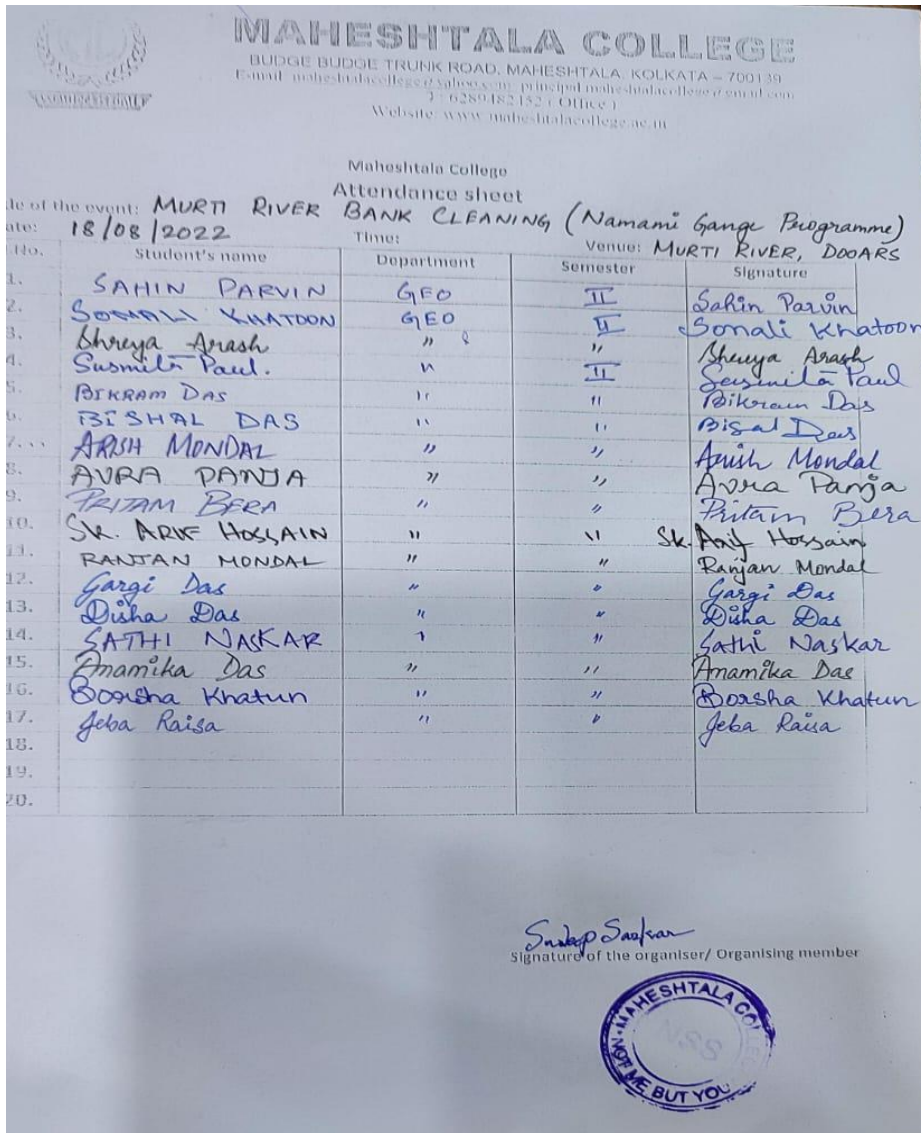 MAHESHTALA COLLEGE
BUDGE BUDGE TRUNK ROAD, MAHESHTALA, KOLKATA – 700139
E-mail: maheshtalacollege@yahoo.com, principal.maheshtalacollege@gmail.com
: 6289482452 ( Office )
Website: www.maheshtalacollege.ac.in
Maheshtala College
Attendance sheet
le of the event: MURTI RIVER BANK CLEANING (Namami Gange Programme)
ate: 18/08/2022 Time: Venue: MURTI RIVER, DOOARS
No. Student's name Department Semester Signature
1. SAHIN PARVIN GEO II Sahin Parvin
2. SOMALI KHATOON GEO II Sonali Khatoon
3. Shreya Arash " " Shreya Arash
4. Susmita Paul. " II Susmita Paul
5. BIKRAM DAS " " Bikram Das
6. BISHAL DAS " " Bisal Das
7... ARISH MONDAL " " Arish Mondal
8. AVRA PANJA " " Avra Panja
9. PRITAM BERA " " Pritam Bera
10. SK. ARIF HOSSAIN " " Sk. Arif Hossain
11. RANJAN MONDAL " " Ranjan Mondal
12. Gargi Das " " Gargi Das
13. Disha Das " " Disha Das
14. SATHI NASKAR " " Sathi Naskar
15. Anamika Das " " Anamika Das
16. Borsha Khatun " " Borsha Khatun
17. Jeba Raisa " " Jeba Raisa
18.
19.
20.
Signature of the organiser/ Organising member
MAHESHTALA COLLEGE
NSS
NOT ME BUT YOU